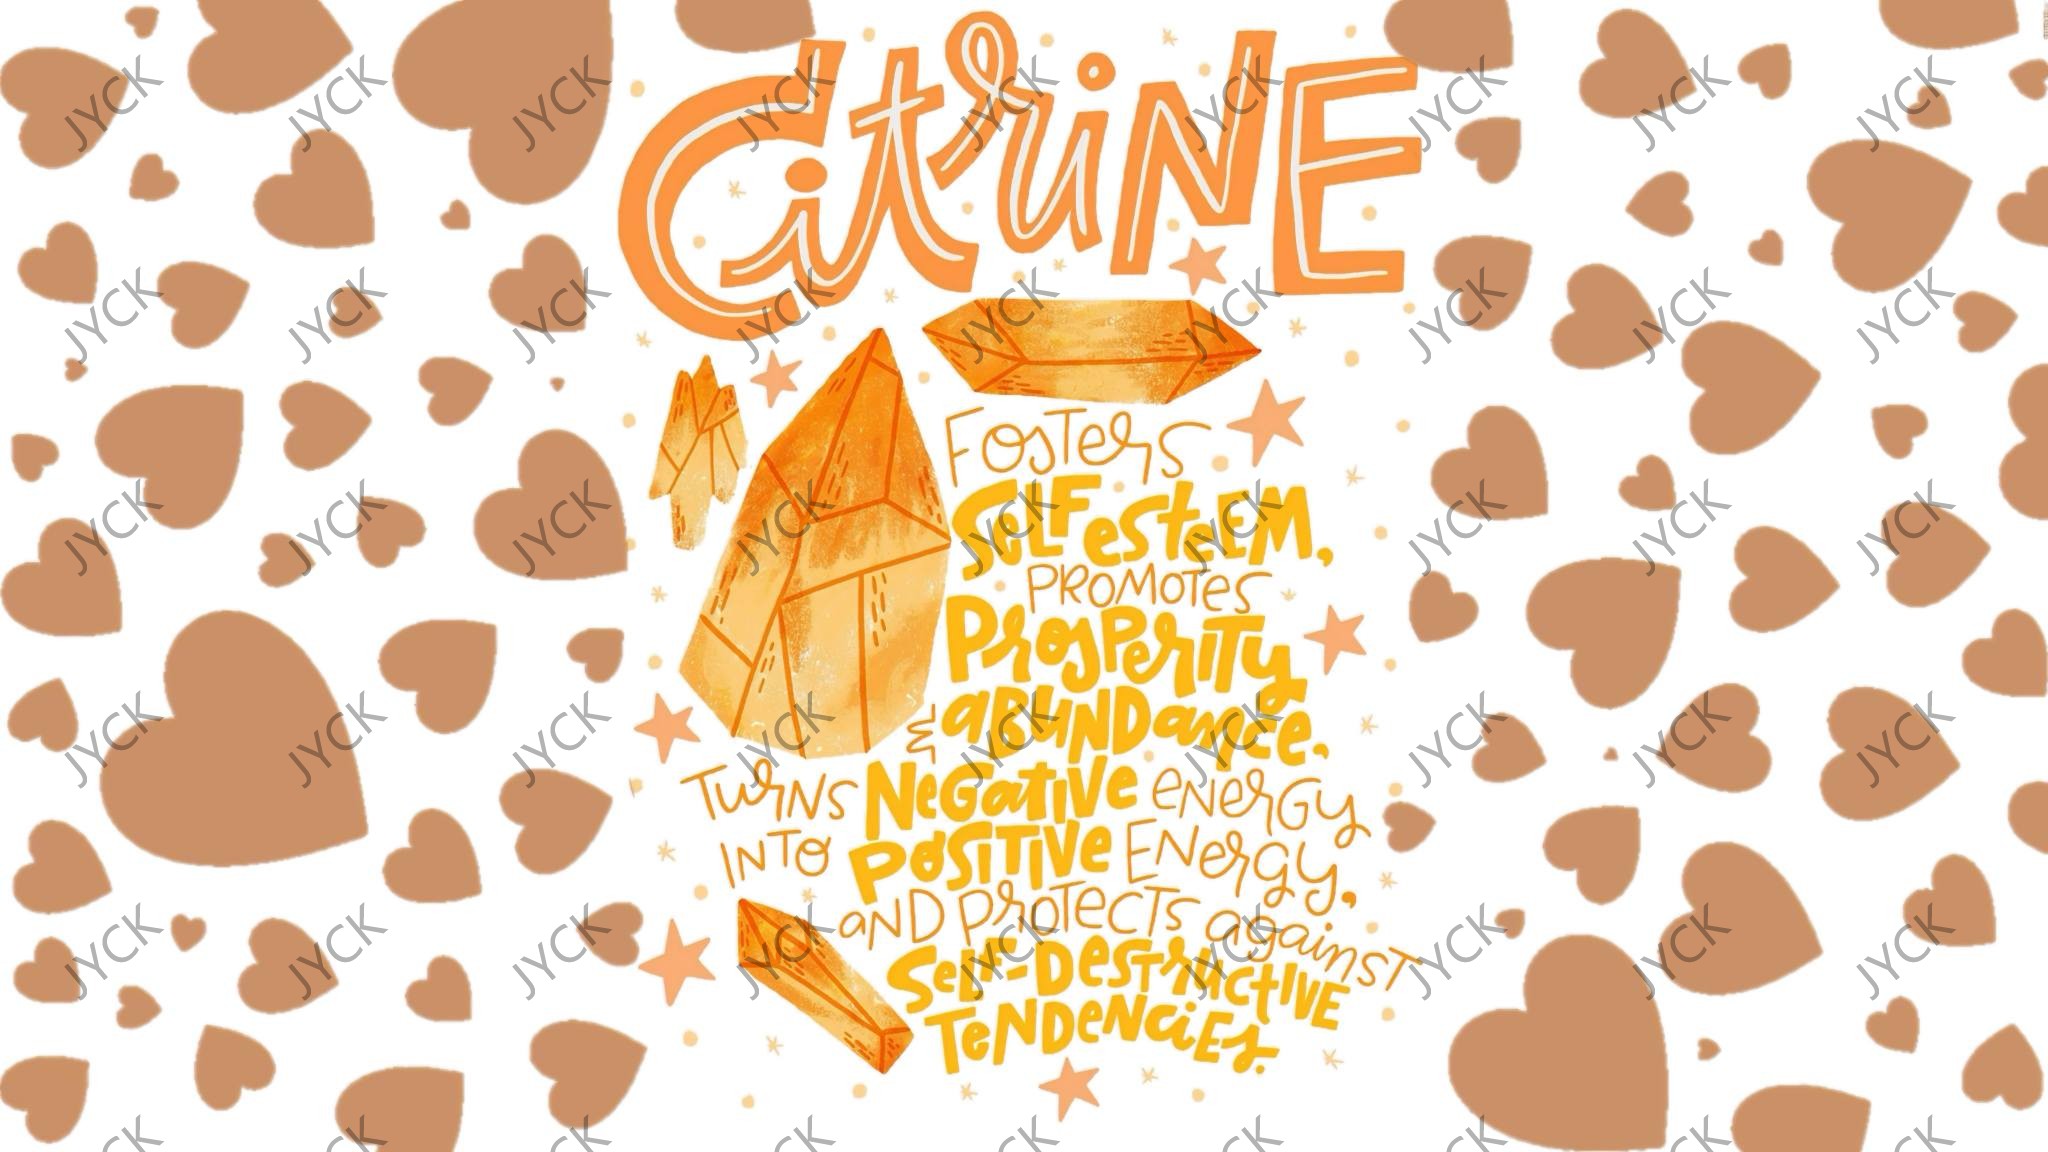 CitriNE
FOSTERS
SELF esteEM,
PROMOTES
PROSPERITY
& ABUNDance.
TURNS NeGatiVe eNerGy
INTO POSITIVE ENeRGy,
aND PROTECTS against
SeLF-DESTRuctIVE
TeNDeNciEs.
JYCK